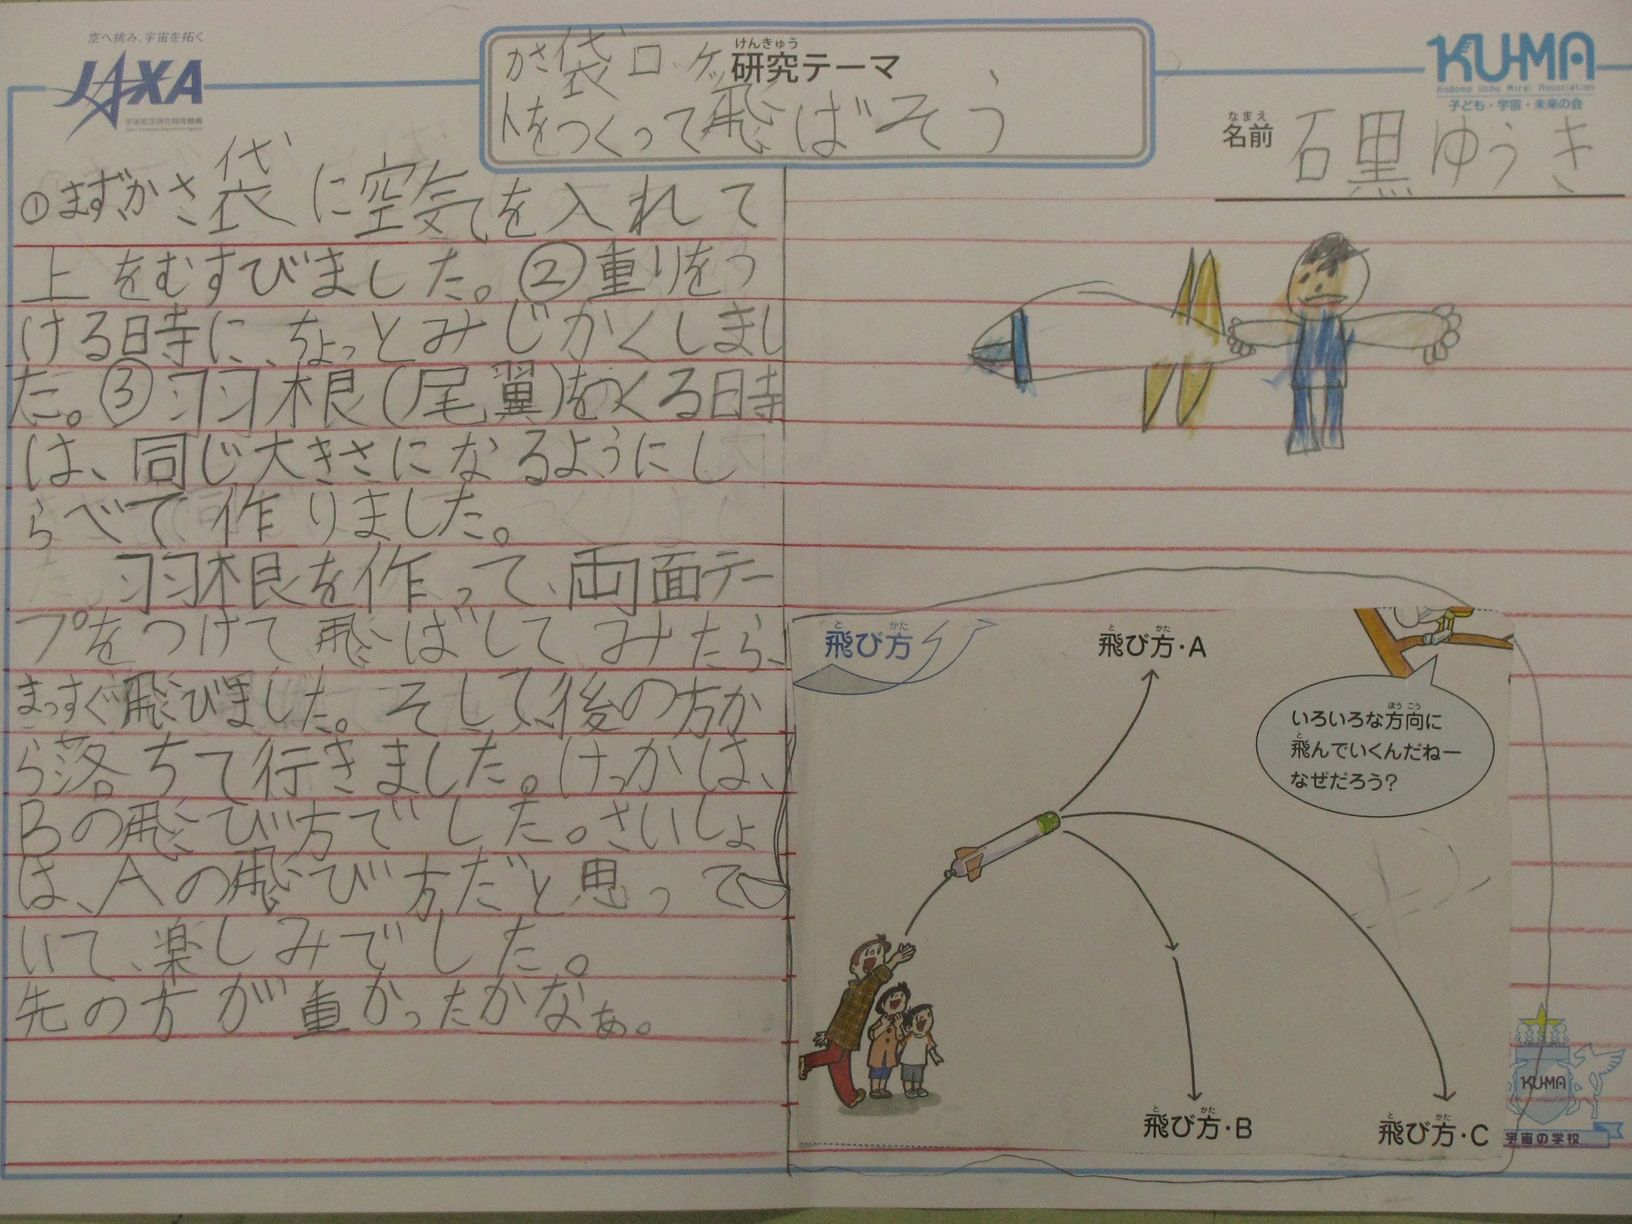 空へ挑み、宇宙を拓く
JAXA
宇宙航空研究開発機構
Japan Aerospace Exploration Agency
けんきゅう
研究テーマ
かさ袋ロケッ
トをつくって飛ばそう
KU-MA
Kodomo Uchu Mirai Association
子ども・宇宙・未来の会
なまえ
名前 石黒ゆうき
①まず、かさ袋に空気を入れて
上をむすびました。②重りをつ
ける時に、ちょっとみじかくしまし
た。③羽根(尾翼)をつくる時
は、同じ大きさになるようにし
らべて作りました。
羽根を作って、両面テー
プをつけて飛ばしてみたら、
まっすぐ飛びました。そして、後の方か
ら落ちて行きました。けっかは、
Bの飛び方でした。さいしょ
は、Aの飛び方だと思って
いて、楽しみでした。
先の方が重かったかなぁ。
と かた
飛び方
と かた
飛び方・A
ほうこう
いろいろな方向に
と
飛んでいくんだねー
なぜだろう?
と かた
飛び方・B
と かた
飛び方・C
KU-MA
宇宙の学校